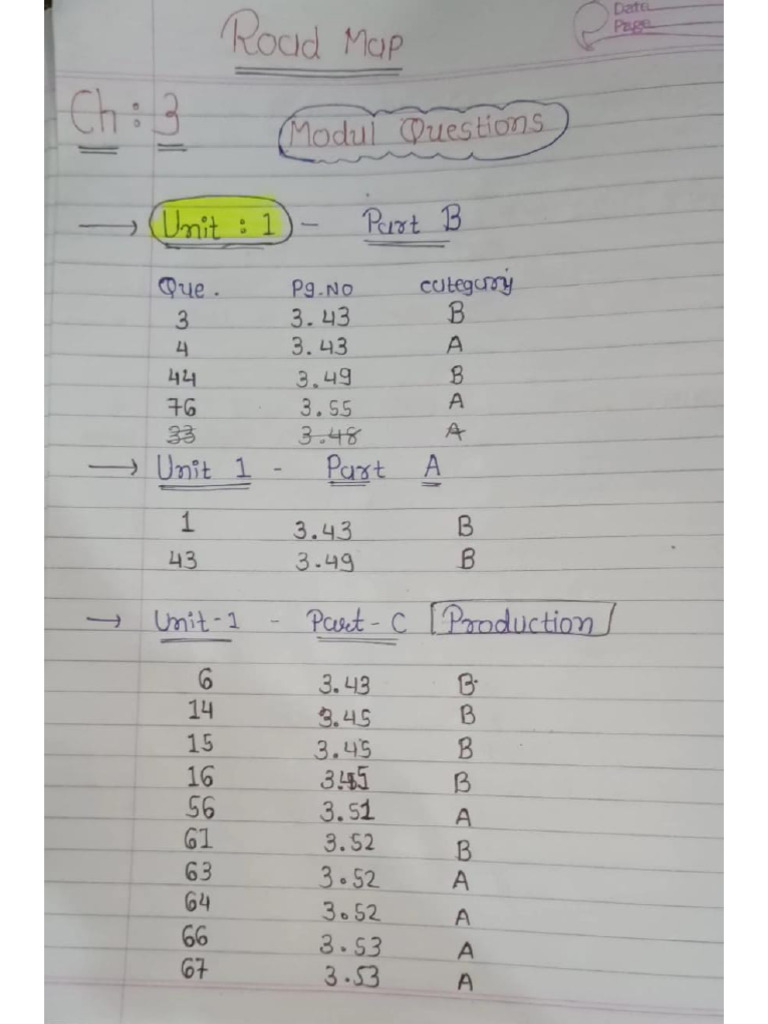 Date
Page
Road Map
Ch : 3
Modul Questions
→ Unit : 1 - Part B
Que. Pg.No category
3 3.43 B
4 3.43 A
44 3.49 B
76 3.55 A
33 3.48 A
→ Unit 1 - Part A
1 3.43 B
43 3.49 B
→ Unit-1 - Part-C [Production]
6 3.43 B
14 3.45 B
15 3.45 B
16 3.45 B
56 3.51 A
61 3.52 B
63 3.52 A
64 3.52 A
66 3.53 A
67 3.53 A